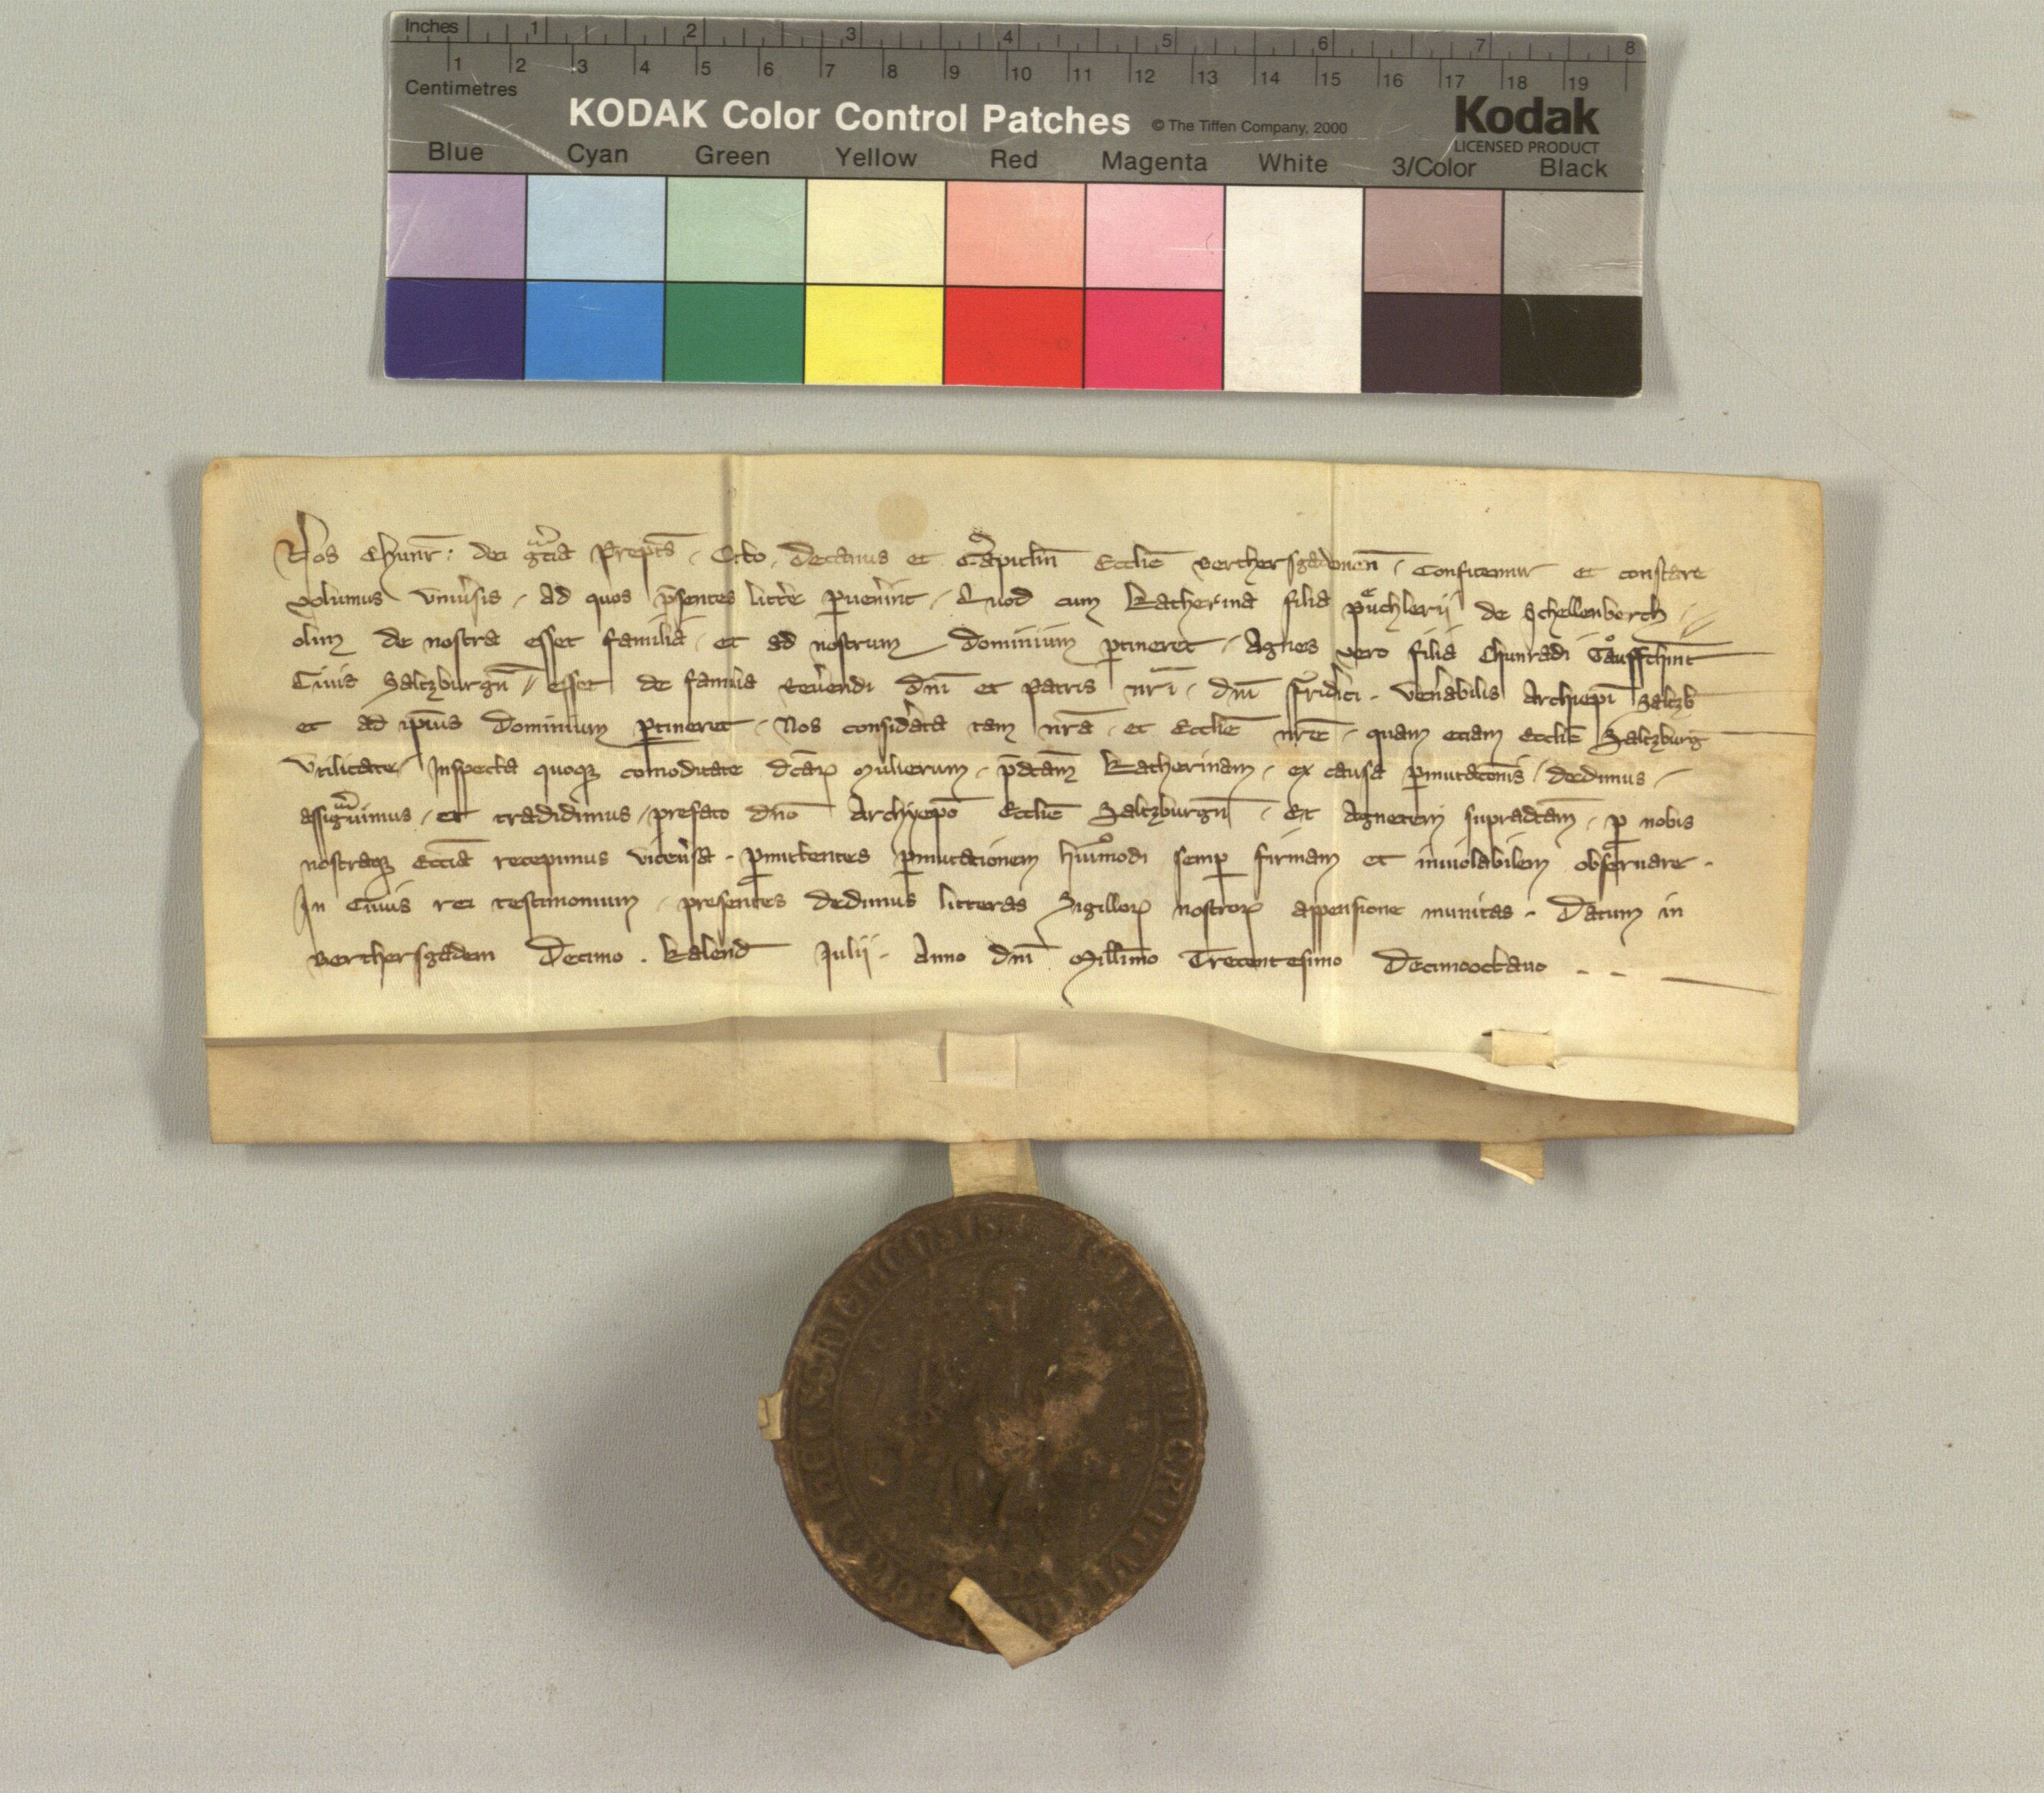 Inches 1 2 3 4 5 6 7 8
1 2 3 4 5 6 7 8 9 10 11 12 13 14 15 16 17 18 19
Centimetres
KODAK Color Control Patches © The Tiffen Company, 2000 Kodak
LICENSED PRODUCT
Blue Cyan Green Yellow Red Magenta White 3/Color Black
Nos Chunr̄: dei gr̄cia Prep̄ts . Otto . Decanus et Capitlm̄ Ecclīe Berthersgadmen̄ . Confitemur et constare
volumus vniu͛sis . ad quos p̄sentes litt͛e ꝑuen͛int . Quod cum Katherina filia puͤchlerii de Schellenberch .
olim de nostra esset familia . et ad nostrum Dominium ꝑtineret . Agnes vero filia Chunradi
Ciuis Saltzburgn̄ / esset de familia reu͛endi dn̄i et patris nr̄i . dn̄i Frid͛ici . Ven͛abilis Archiepī Saltzb
et ad ip̄ius Dominium ꝑtineret . Nos consid͛ata tam nr̄a . et Ecclīe nr̄e . quam etiam Ecclīe Saltzburg
Vtilitate / Inspecta quoqꝫ comoditate dc̄aꝝ mulierum . p̄dc̄am Katherinam . ex causa ꝑmutac̄onis / dedimus .
assignauimus . et tradidimus / prefato dn̄o Archyepō Ecclīe Saltzburgn̄ . Et Agnetem supradc̄am . ꝓ nobis
nostraqꝫ Ecc̄ia recepimus vice͛usa . ꝓmittentes ꝑmutationem hui͛modi semꝑ firmam et inuiolabilem obseruare .
In Cuius rei testimonium . presentes dedimus litteras Sigilloꝝ nostroꝝ appensione munitas . Datum in
Berthersgadem Decimo . Kalend̄ Julij . Anno dn̄i Millīmo Trecentesimo Decimooctauo . .